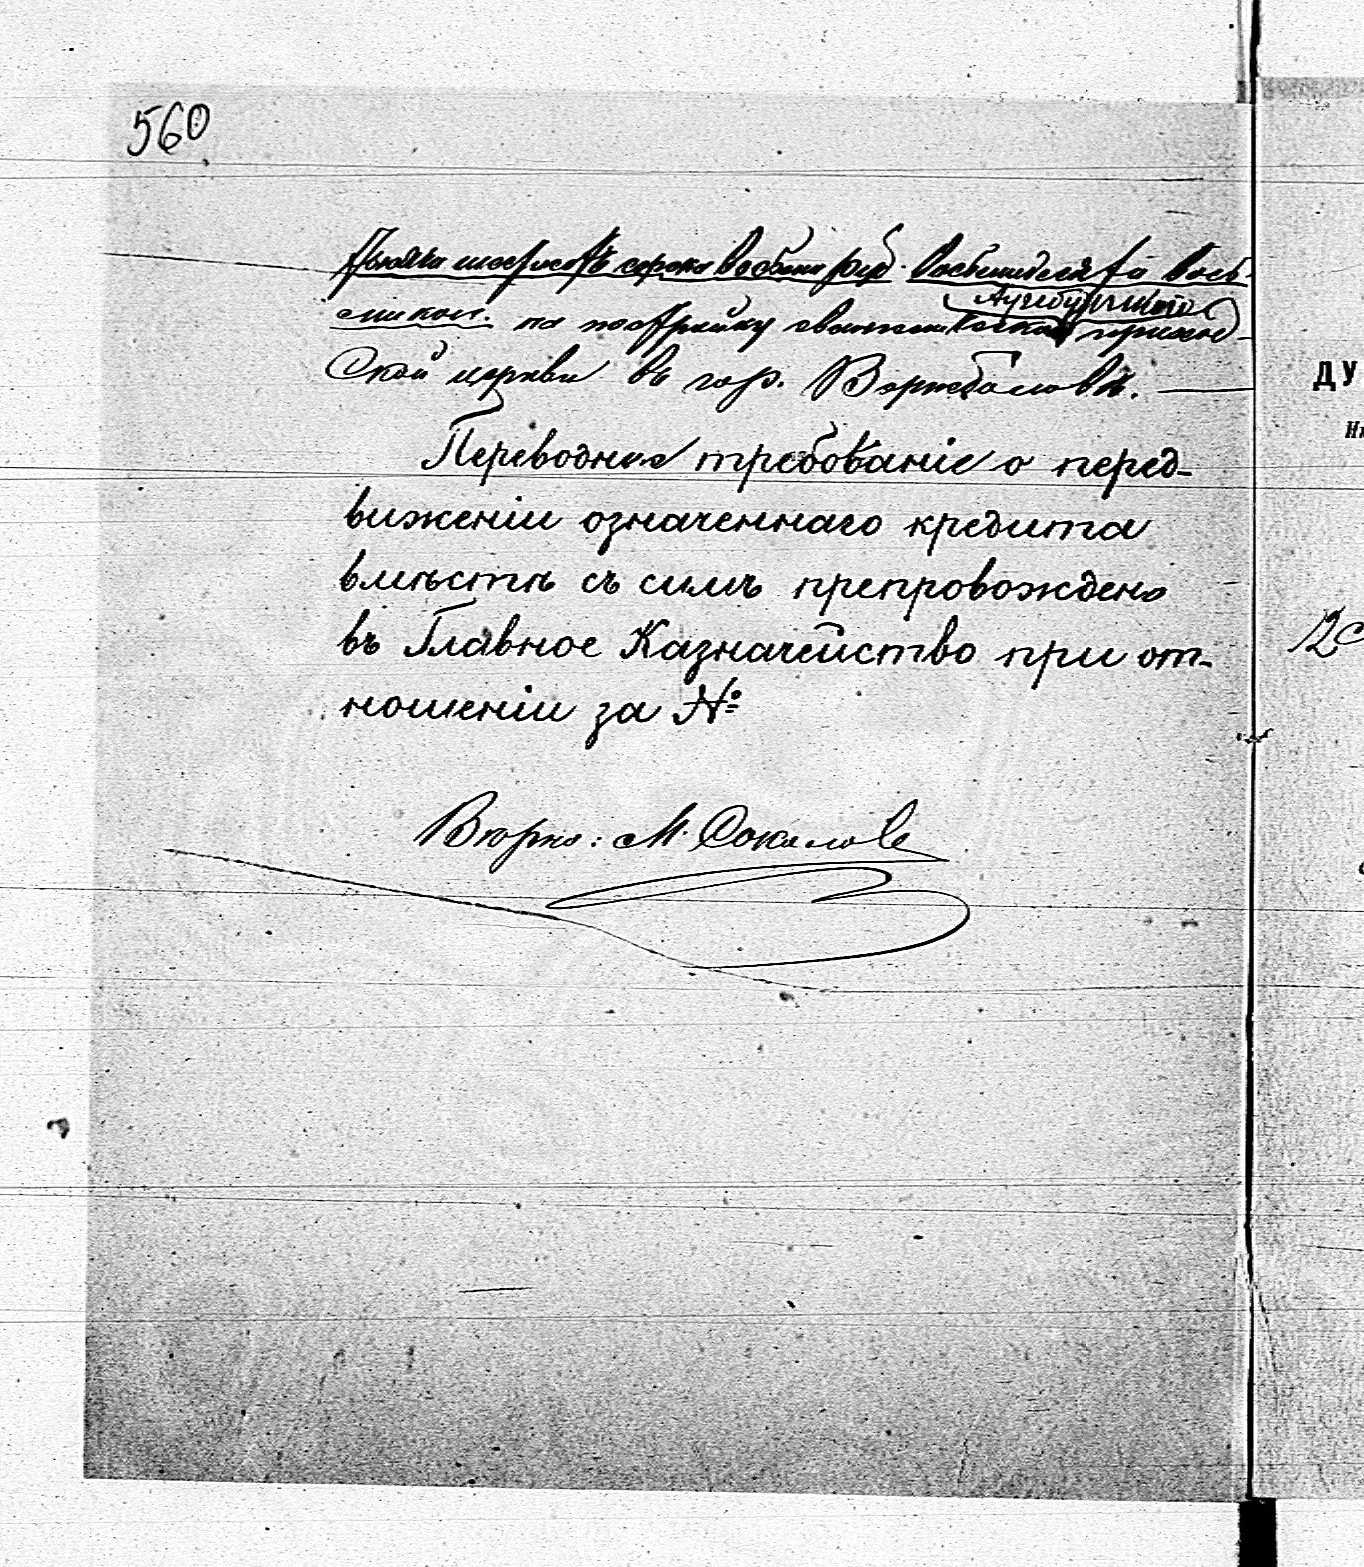 560
тысяча шестьсотъ сорокъ восемь руб. восемьдесятъ восемь
коп. на постройку евангелическо Аугсбургскаго приход-
ской церкви въ гор. Вержболовѣ.
Переводное требованіе о перед-
виженіи означеннаго кредита
вмѣстѣ съ симъ препровождено
въ Главное Казначейство при от-
ношеніи за №
М. Соколовъ
ДУ